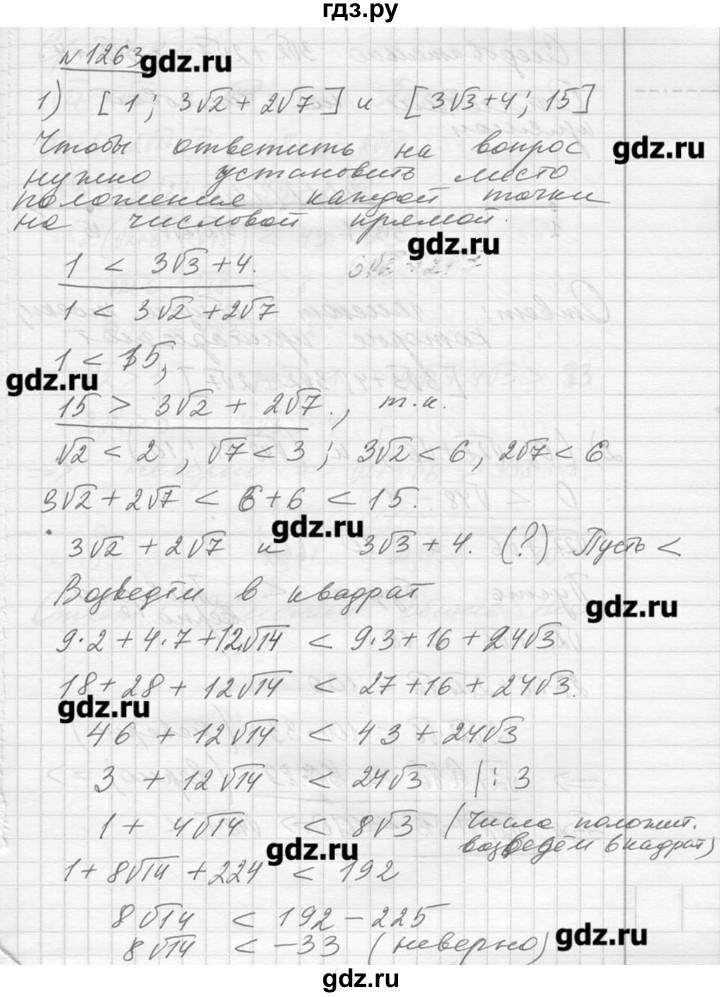 гдз.ру
№1263 gdz.ru
1) [1; 3√2 + 2√7] и [3√3+4; 15]
Чтобы ответить на вопрос gdz.ru
нужно установить место
положение каждой точки
на числовой прямой.
gdz.ru
1 < 3√3+4.
1 < 3√2+2√7
1 < 15,
gdz.ru
15 > 3√2 + 2√7., т.к.
√2 < 2, √7 < 3; 3√2 < 6, 2√7 < 6
3√2+2√7 < 6+6 < 15.
gdz.ru
3√2+2√7 и 3√3+4. (?) Пусть <
Возведём в квадрат gdz.ru
9·2+4·7+12√14 < 9·3+16+24√3
18+28+12√14 < 27+16+24√3.
gdz.ru
46+12√14 < 43+24√3
3 + 12√14 < 24√3 |:3
1+ 4√14 < 8√3 (Числа положит.
возведём в кадрат)
gdz.ru
1+8√14+224 < 192
8√14 < 192-225
8√14 < -33 (неверно) gdz.ru
gdz.ru